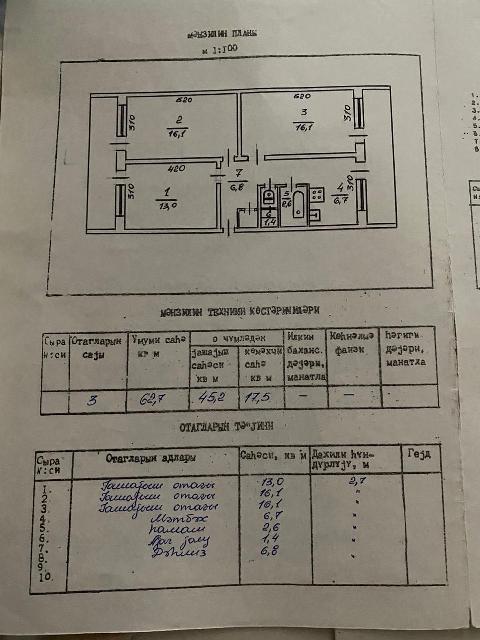 МӘНЗИЛИН ПЛАНЫ
М 1:100
620
620
310
2
16,1
3
16,1
310
420
7
6,8
310
1
13,0
5
2,6
4
6,7
310
6
1,4
МӘНЗИЛИН ТЕХНИКИ КӨСТӘРИҸИЛӘРИ
Сыра N:си
Отагларын сајы
Үмуми саһә кв м
о ҹүмләдән
јашајыш саһәси кв м
көмәкчи саһә кв м
Илкин баланс. дәјәри, манатла
Көһнәлмә фаизи
Һәгиги дәјәри, манатла
3 62,7 45,2 17,5 – – –
ОТАГЛАРЫН ТӘЈИНИ
Сыра N:си
Отагларын адлары
Саһәси, кв м
Дахили һүндүрлүјү, м
Гејд
1. Јашајыш отағы 13,0 2,7
2. Јашајыш отағы 16,1 "
3. Јашајыш отағы 16,1 "
4. Мәтбәх 6,7 "
5. Һамам 2,6 "
6. 1,4 "
7. Дәһлиз 6,8 "
8.
9.
10.